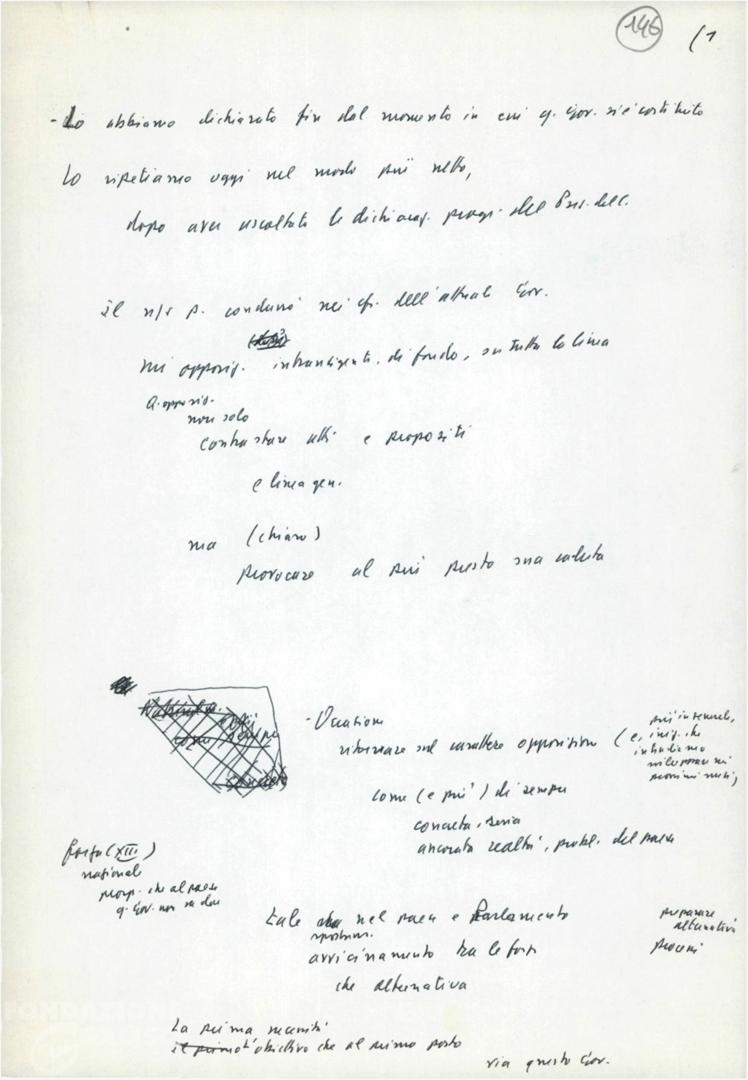 146 (1
- Lo abbiamo dichiarato fin dal momento in cui q. Gov. si è costituito
Lo ripetiamo oggi nel modo più netto,
dopo aver ascoltato le dichiaraz. progr. del Pres. del C.
il n/s p. condurrà nei cfr. dell'attuale Gov.
un opposiz. intransigente, di fondo, su tutta la linea
Q. opposiz.
non solo
contrastare atti e propositi
e linea gen.
ma (chiaro)
provocare al più presto sua caduta
- Occasione
ritornare sul carattere opposizione
(e, iniz. che
intendiamo
sviluppare nei
prossimi mesi)
più in generale,
come (e più) di sempre
concreta, seria
ancorata realtà, probl. del paese
(XIII)
nazionale
che al paese
q. Gov. non sa dare
tale nel paese e Parlamento
avvicinamento tra le forze
che alternativa
preparare
alternativa
La prima necessità
il primo obiettivo che al primo posto
via questo Gov.